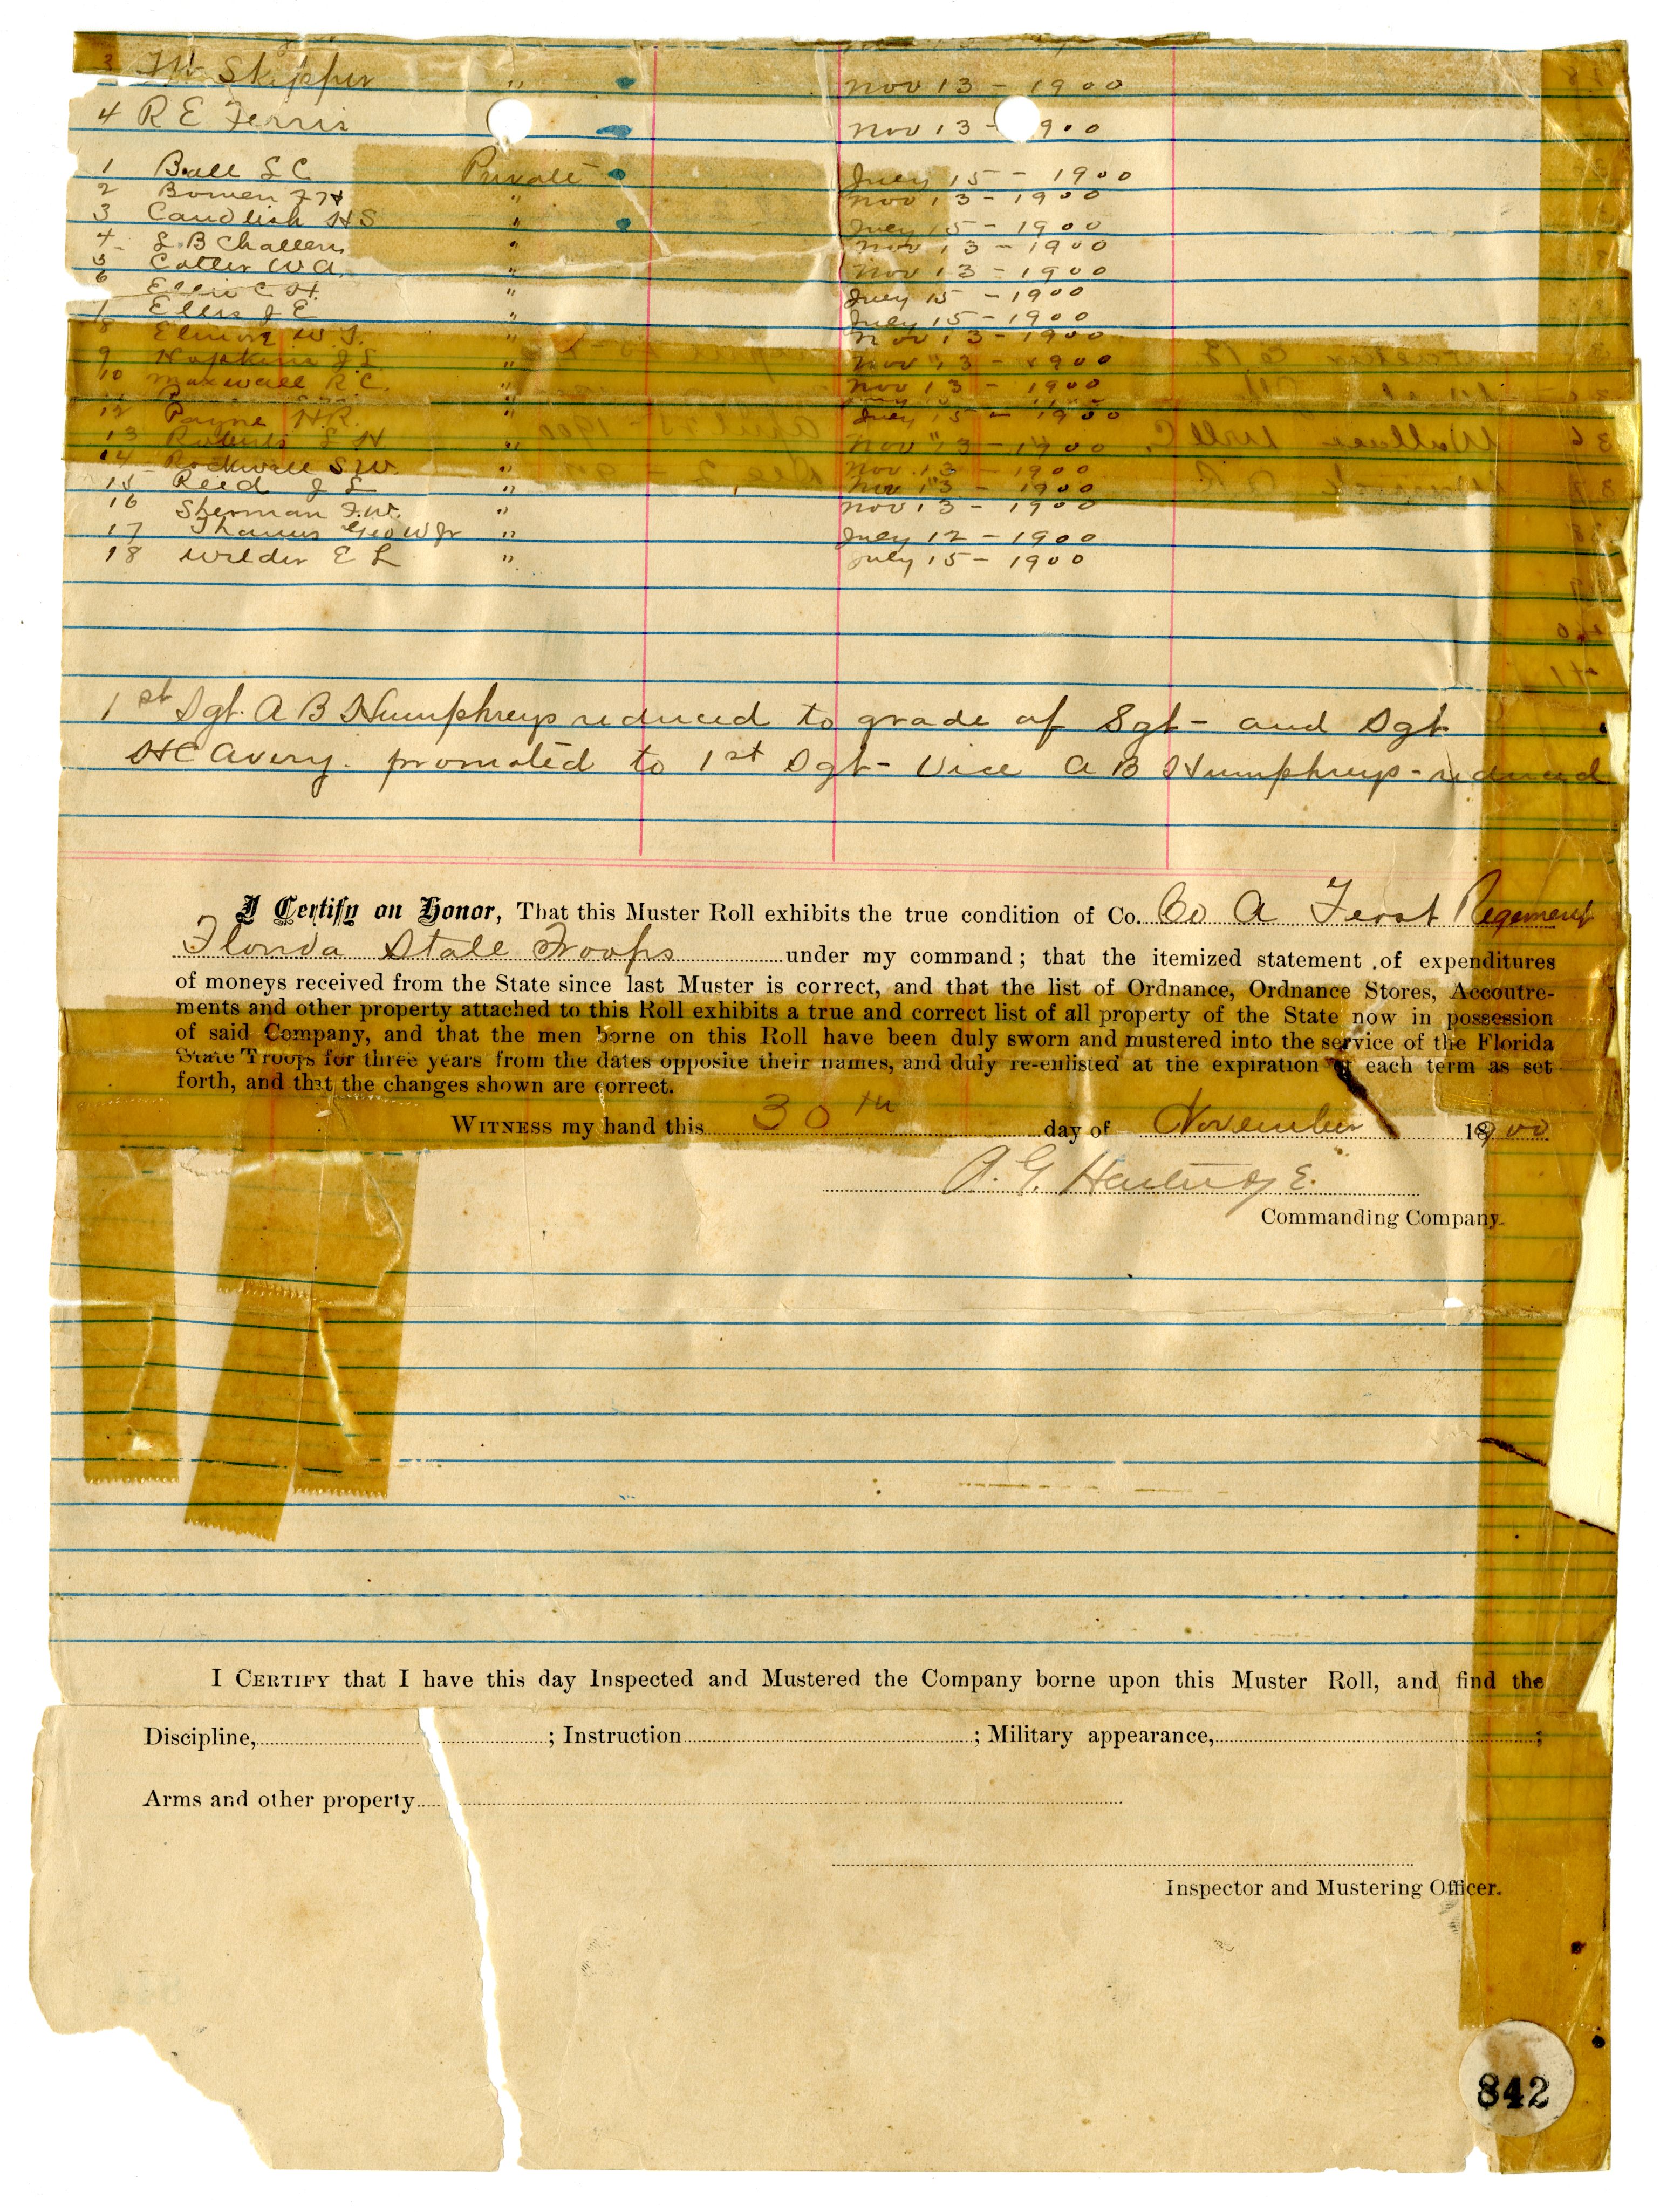 3 Skipper " Nov 13 - 1900
4 R E Ferris Nov 13 - 900
1 Ball L C Private July 15 - 1900
2 Bowen " Nov 13 - 1900
3 Candlish H S " July 15 - 1900
4 L B Challen " Nov 13 - 1900
5 Cotter W A. " Nov 13 - 1900
6 Ellis C H. " July 15 - 1900
7 Ellis J E " July 15 - 1900
8 W. " Nov 13 - 1900
9 Hopkins J. L. " Nov 13 - 1900
10 Maxwell R C. " Nov 13 - 1900
12 Payne H. R. " July 15 - 1900
13 Roberts L H " Nov 13 - 1900
14 - Rockwell S. W. " Nov 13 - 1900
15 Reed J L " Nov 13 - 1900
16 Sherman F. W. " Nov 13 - 1900
17 Thames Geo W Jr " July 12 - 1900
18 Wilder E L " July 15 - 1900
1st Sgt. A B Humphreys reduced to grade of Sgt - and Sgt
H C Avery. promoted to 1st Sgt - Vice A B Humphreys - reduced
I Certify on Honor, That this Muster Roll exhibits the true condition of Co. Co A First Regiment
Florida State Troops under my command; that the itemized statement of expenditures
of moneys received from the State since last Muster is correct, and that the list of Ordnance, Ordnance Stores, Accoutre-
ments and other property attached to this Roll exhibits a true and correct list of all property of the State now in possession
of said Company, and that the men borne on this Roll have been duly sworn and mustered into the service of the Florida
State Troops for three years from the dates opposite their names, and duly re-enlisted at the expiration of each term as set
forth, and that the changes shown are correct.
WITNESS my hand this 30th day of November 1900
A. G. Hartridge.
Commanding Company.
I CERTIFY that I have this day Inspected and Mustered the Company borne upon this Muster Roll, and find the
Discipline, ; Instruction ; Military appearance, ;
Arms and other property
Inspector and Mustering Officer.
842